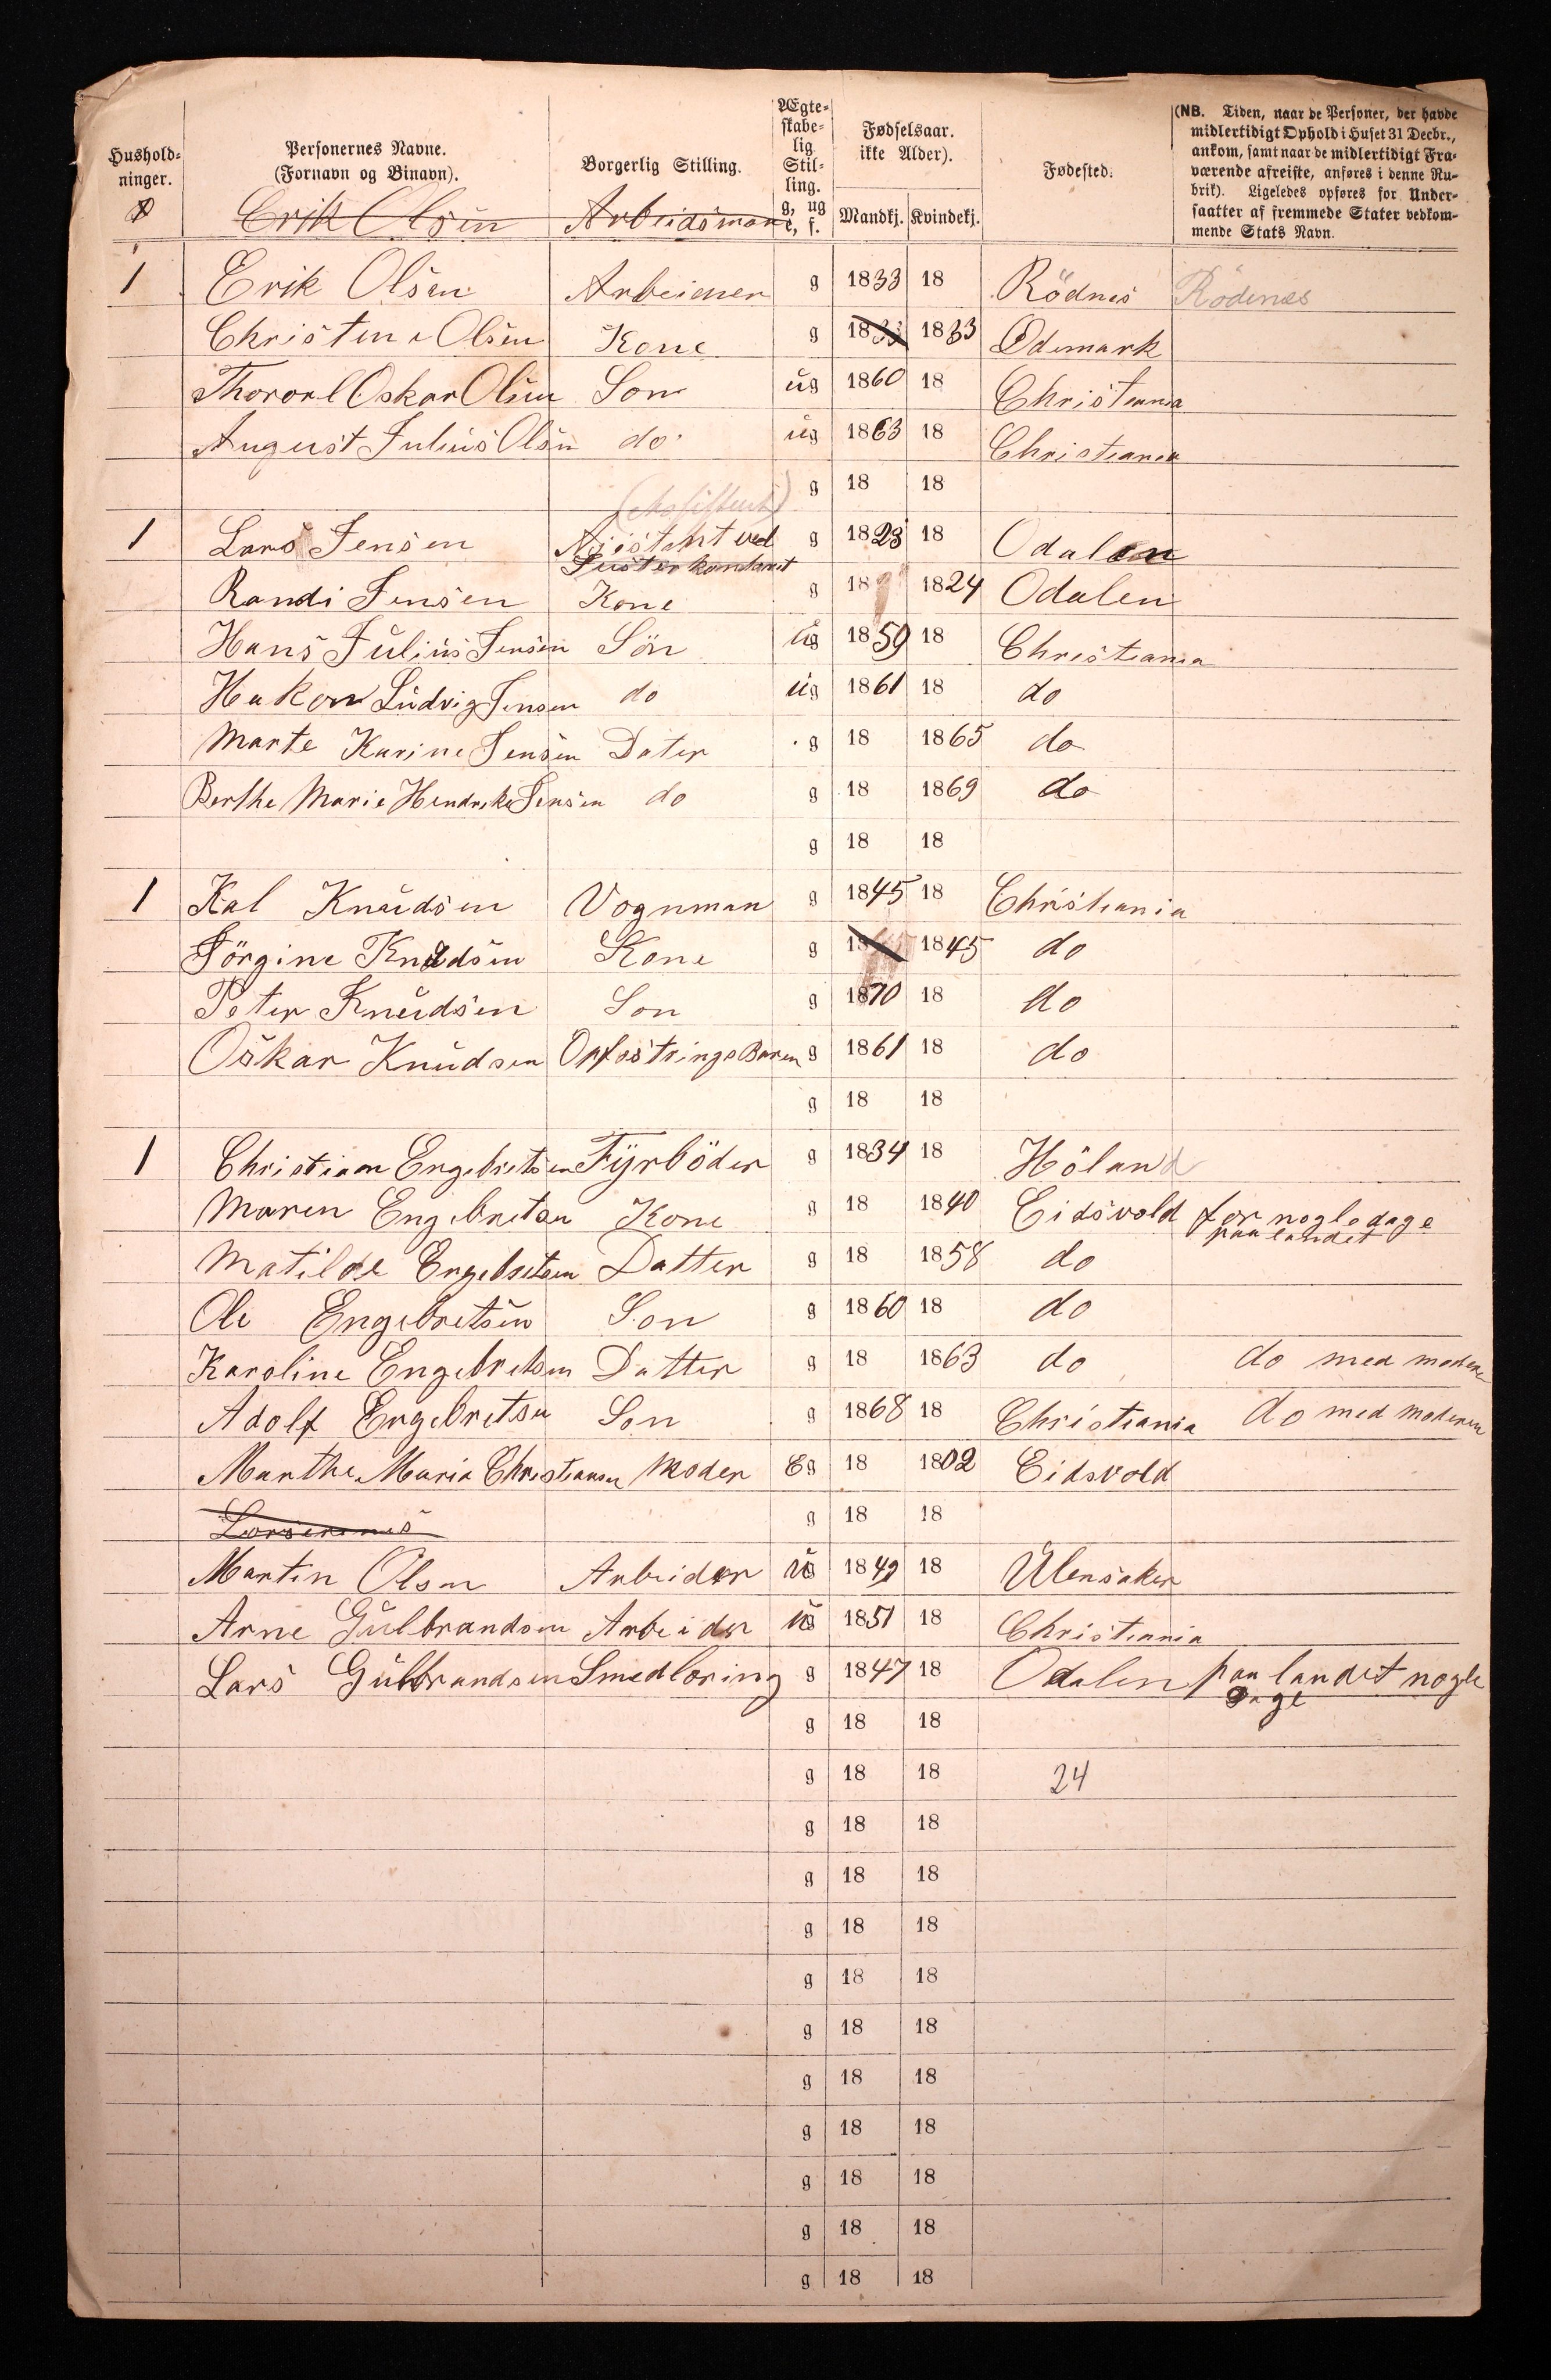 Hushold-ninger. Personernes Navne. (Fornavn og Binavn). Borgerlig Stilling. Ægte-skabe-lig Stil-ling. g, ug e, f. Fødselsaar. ikke Alder). Mandkj. Kvindekj. Fødested. (NB. Tiden, naar de Personer, der havde midlertidigt Ophold i Huset 31 Decbr., ankom, samt naar de midlertidigt Fra-værende afreiste, anføres i denne Ru-brik). Ligeledes opføres for Under-saatter af fremmede Stater vedkom-mende Stats Navn.
Erik Olsen Arbeidsmand
1 Erik Olsen Arbeider g 1833 18 Rödnes Rödenes
Christine Olsen Kone g 1833 1833 Ödemark
Thorval Oskar Olsen Son ug 1860 18 Christiania
August Julius Olsen do ug 1863 18 Christiania
g 18 18
(Assistent)
1 Lars Jensen Assistent ved g 1823 18 Odalen
Justerkontoret
Randi Jensen Kone g 18 1824 Odalen
Hans Julius Jensen Sön ug 1859 18 Christiania
Hakon Ludvig Jensen do ug 1861 18 do
Marte Karine Jensen Dater g 18 1865 do
Berthe Marie Hendrike Jensen do g 18 1869 do
g 18 18
1 Kal Knudsen Vognman g 1845 18 Christiania
Jörgine Knudsen Kone g 18 1845 do
Peter Knudsen Son g 1870 18 do
Oskar Knudsen Opfostrings Baren g 1861 18 do
g 18 18
1 Christian Engebretsen Fyrböder g 1834 18 Höland
Maren Engebretsen Kone g 18 1840 Eidsvold for nogle dage
paa landet
Matilde Engebretsen Datter g 18 1858 do
Ole Engebretsen Son g 1860 18 do
Karoline Engebretsen Datter g 18 1863 do do med moderen
Adolf Engebretsen Son g 1868 18 Christiania do med moderen
Marthe Maria Christiansen Moder Eg 18 1802 Eidsvold
g 18 18
Martin Olsen Arbeider ug 1849 18 Ulensaker
Arne Gulbrandsen Arbeider ug 1851 18 Christiania
Lars Gulbrandsen Smedlæring g 1847 18 Odalen paa landet nogle
Dage
g 18 18
g 18 18 24
g 18 18
g 18 18
g 18 18
g 18 18
g 18 18
g 18 18
g 18 18
g 18 18
g 18 18
g 18 18